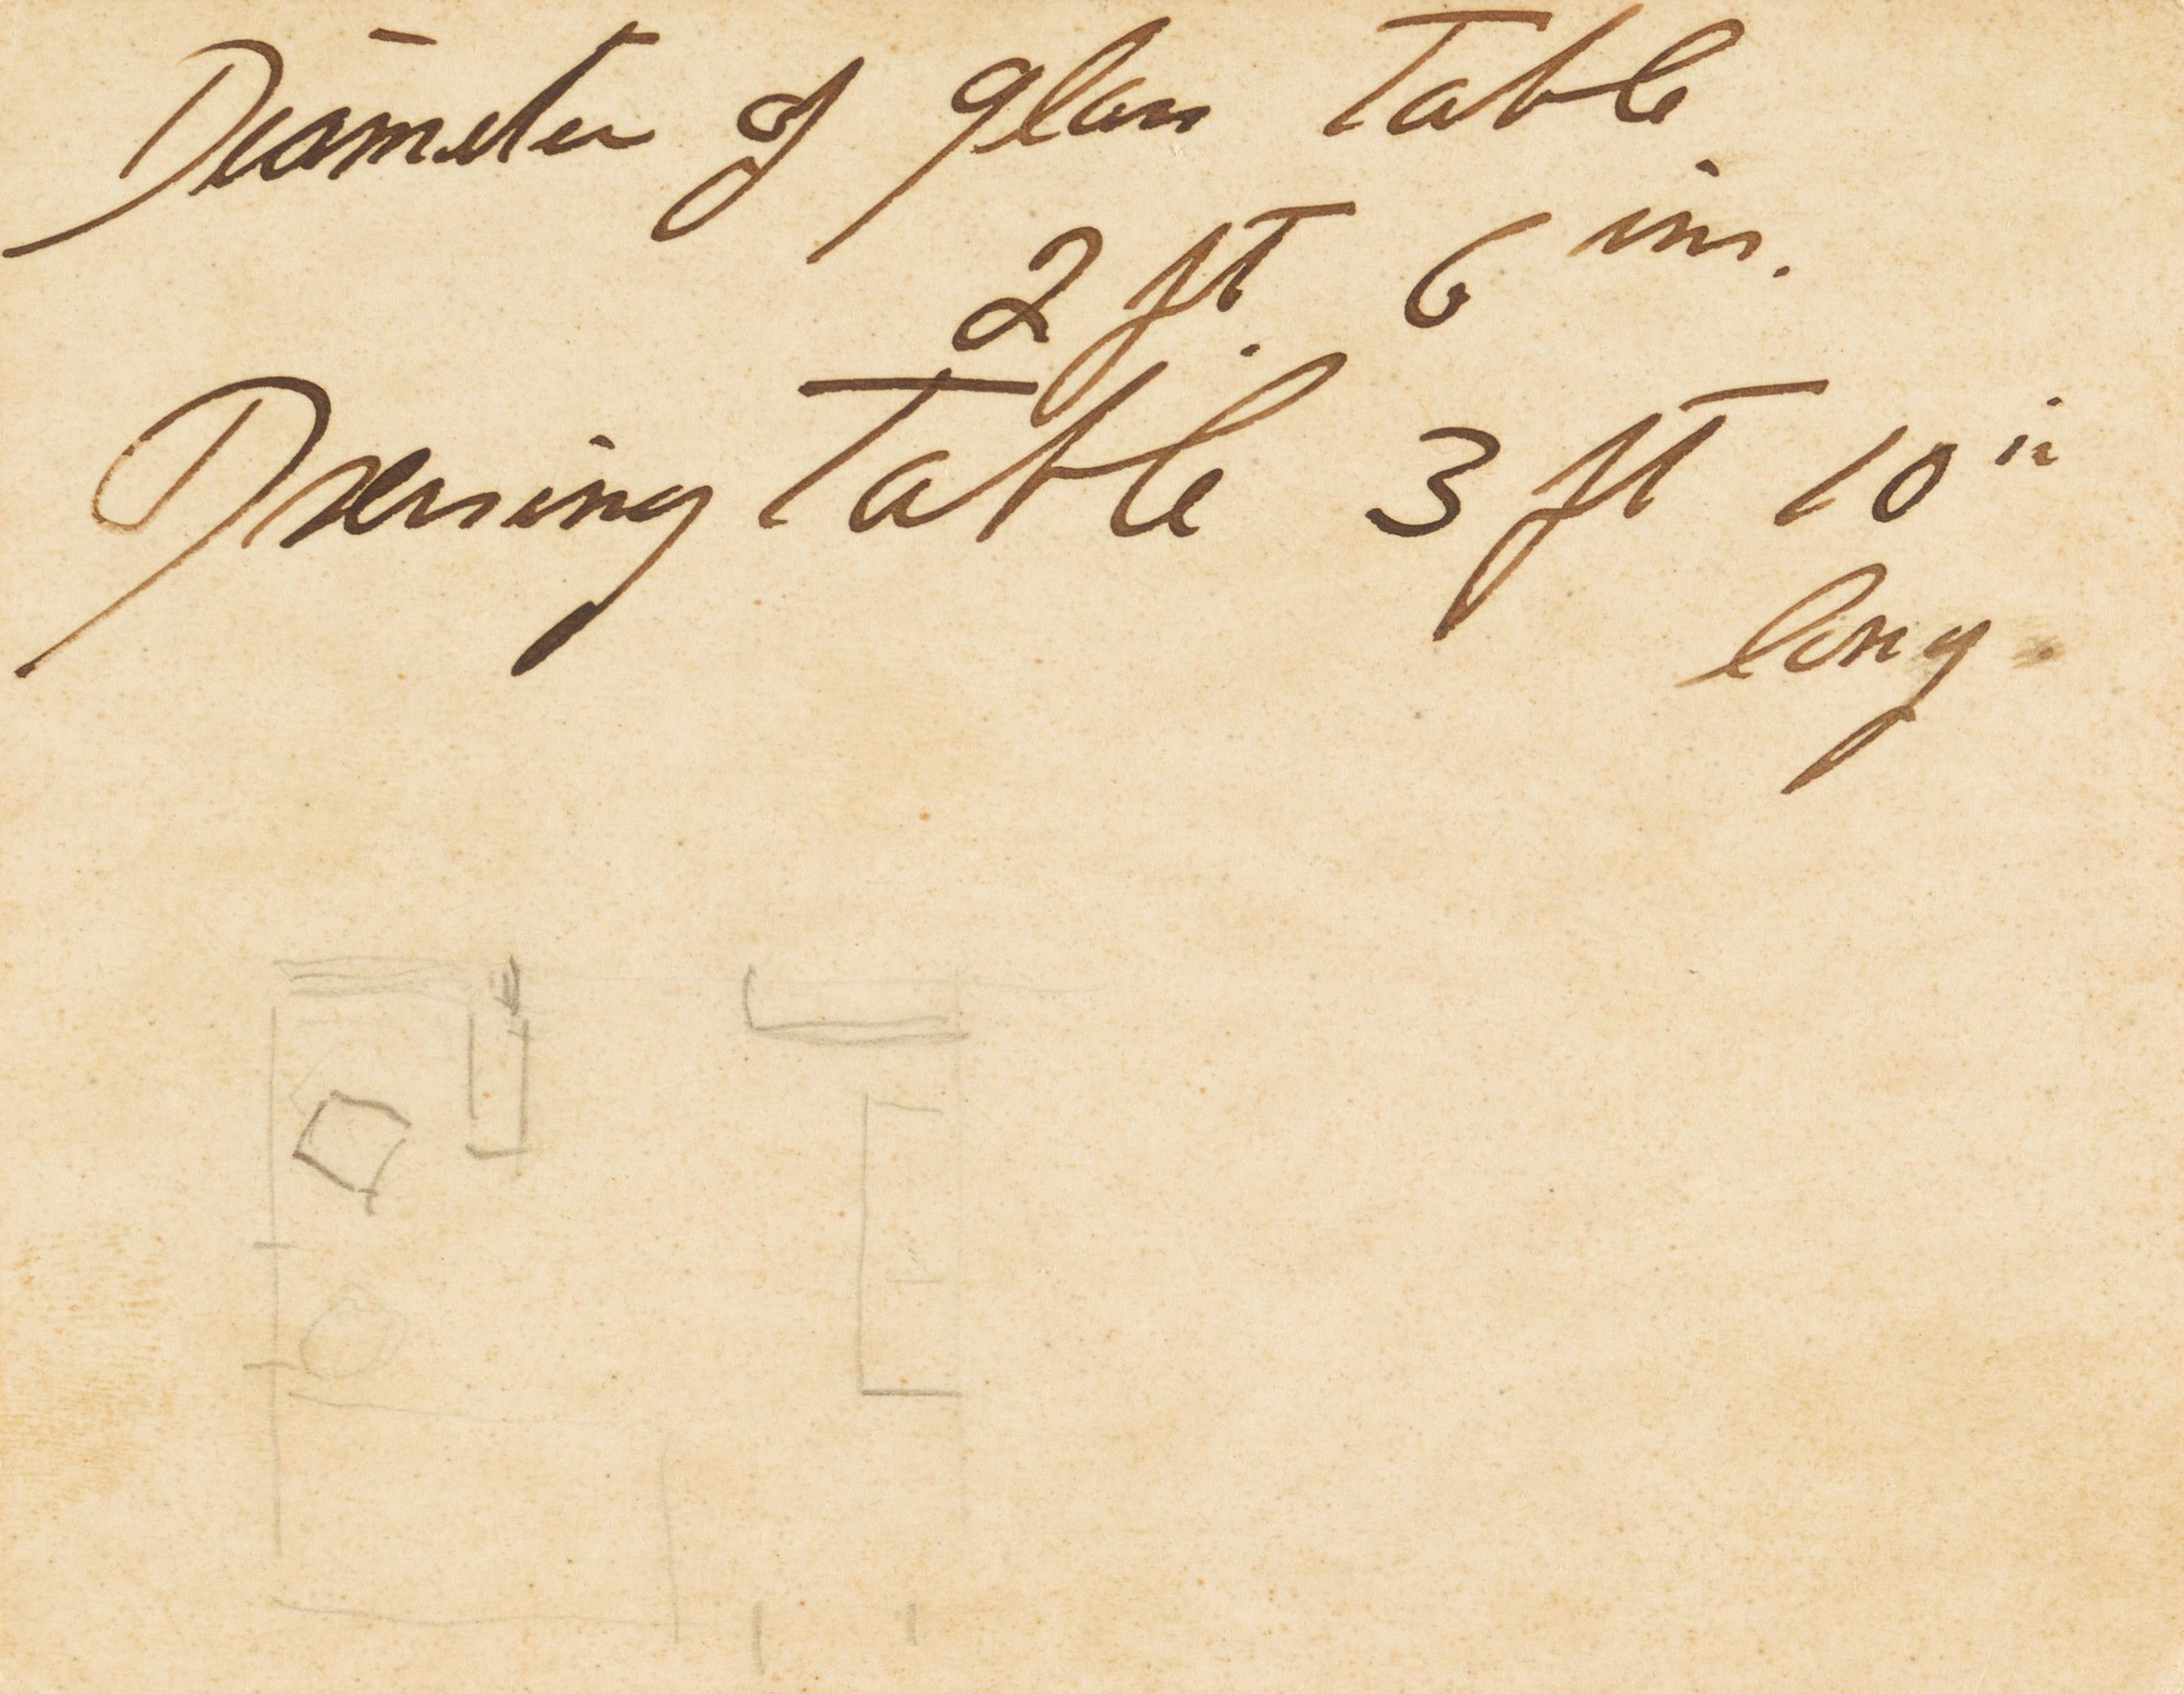 Diameter of glass Table
2 ft. 6 ins.
Dressing Table 3 ft 10 in
long.